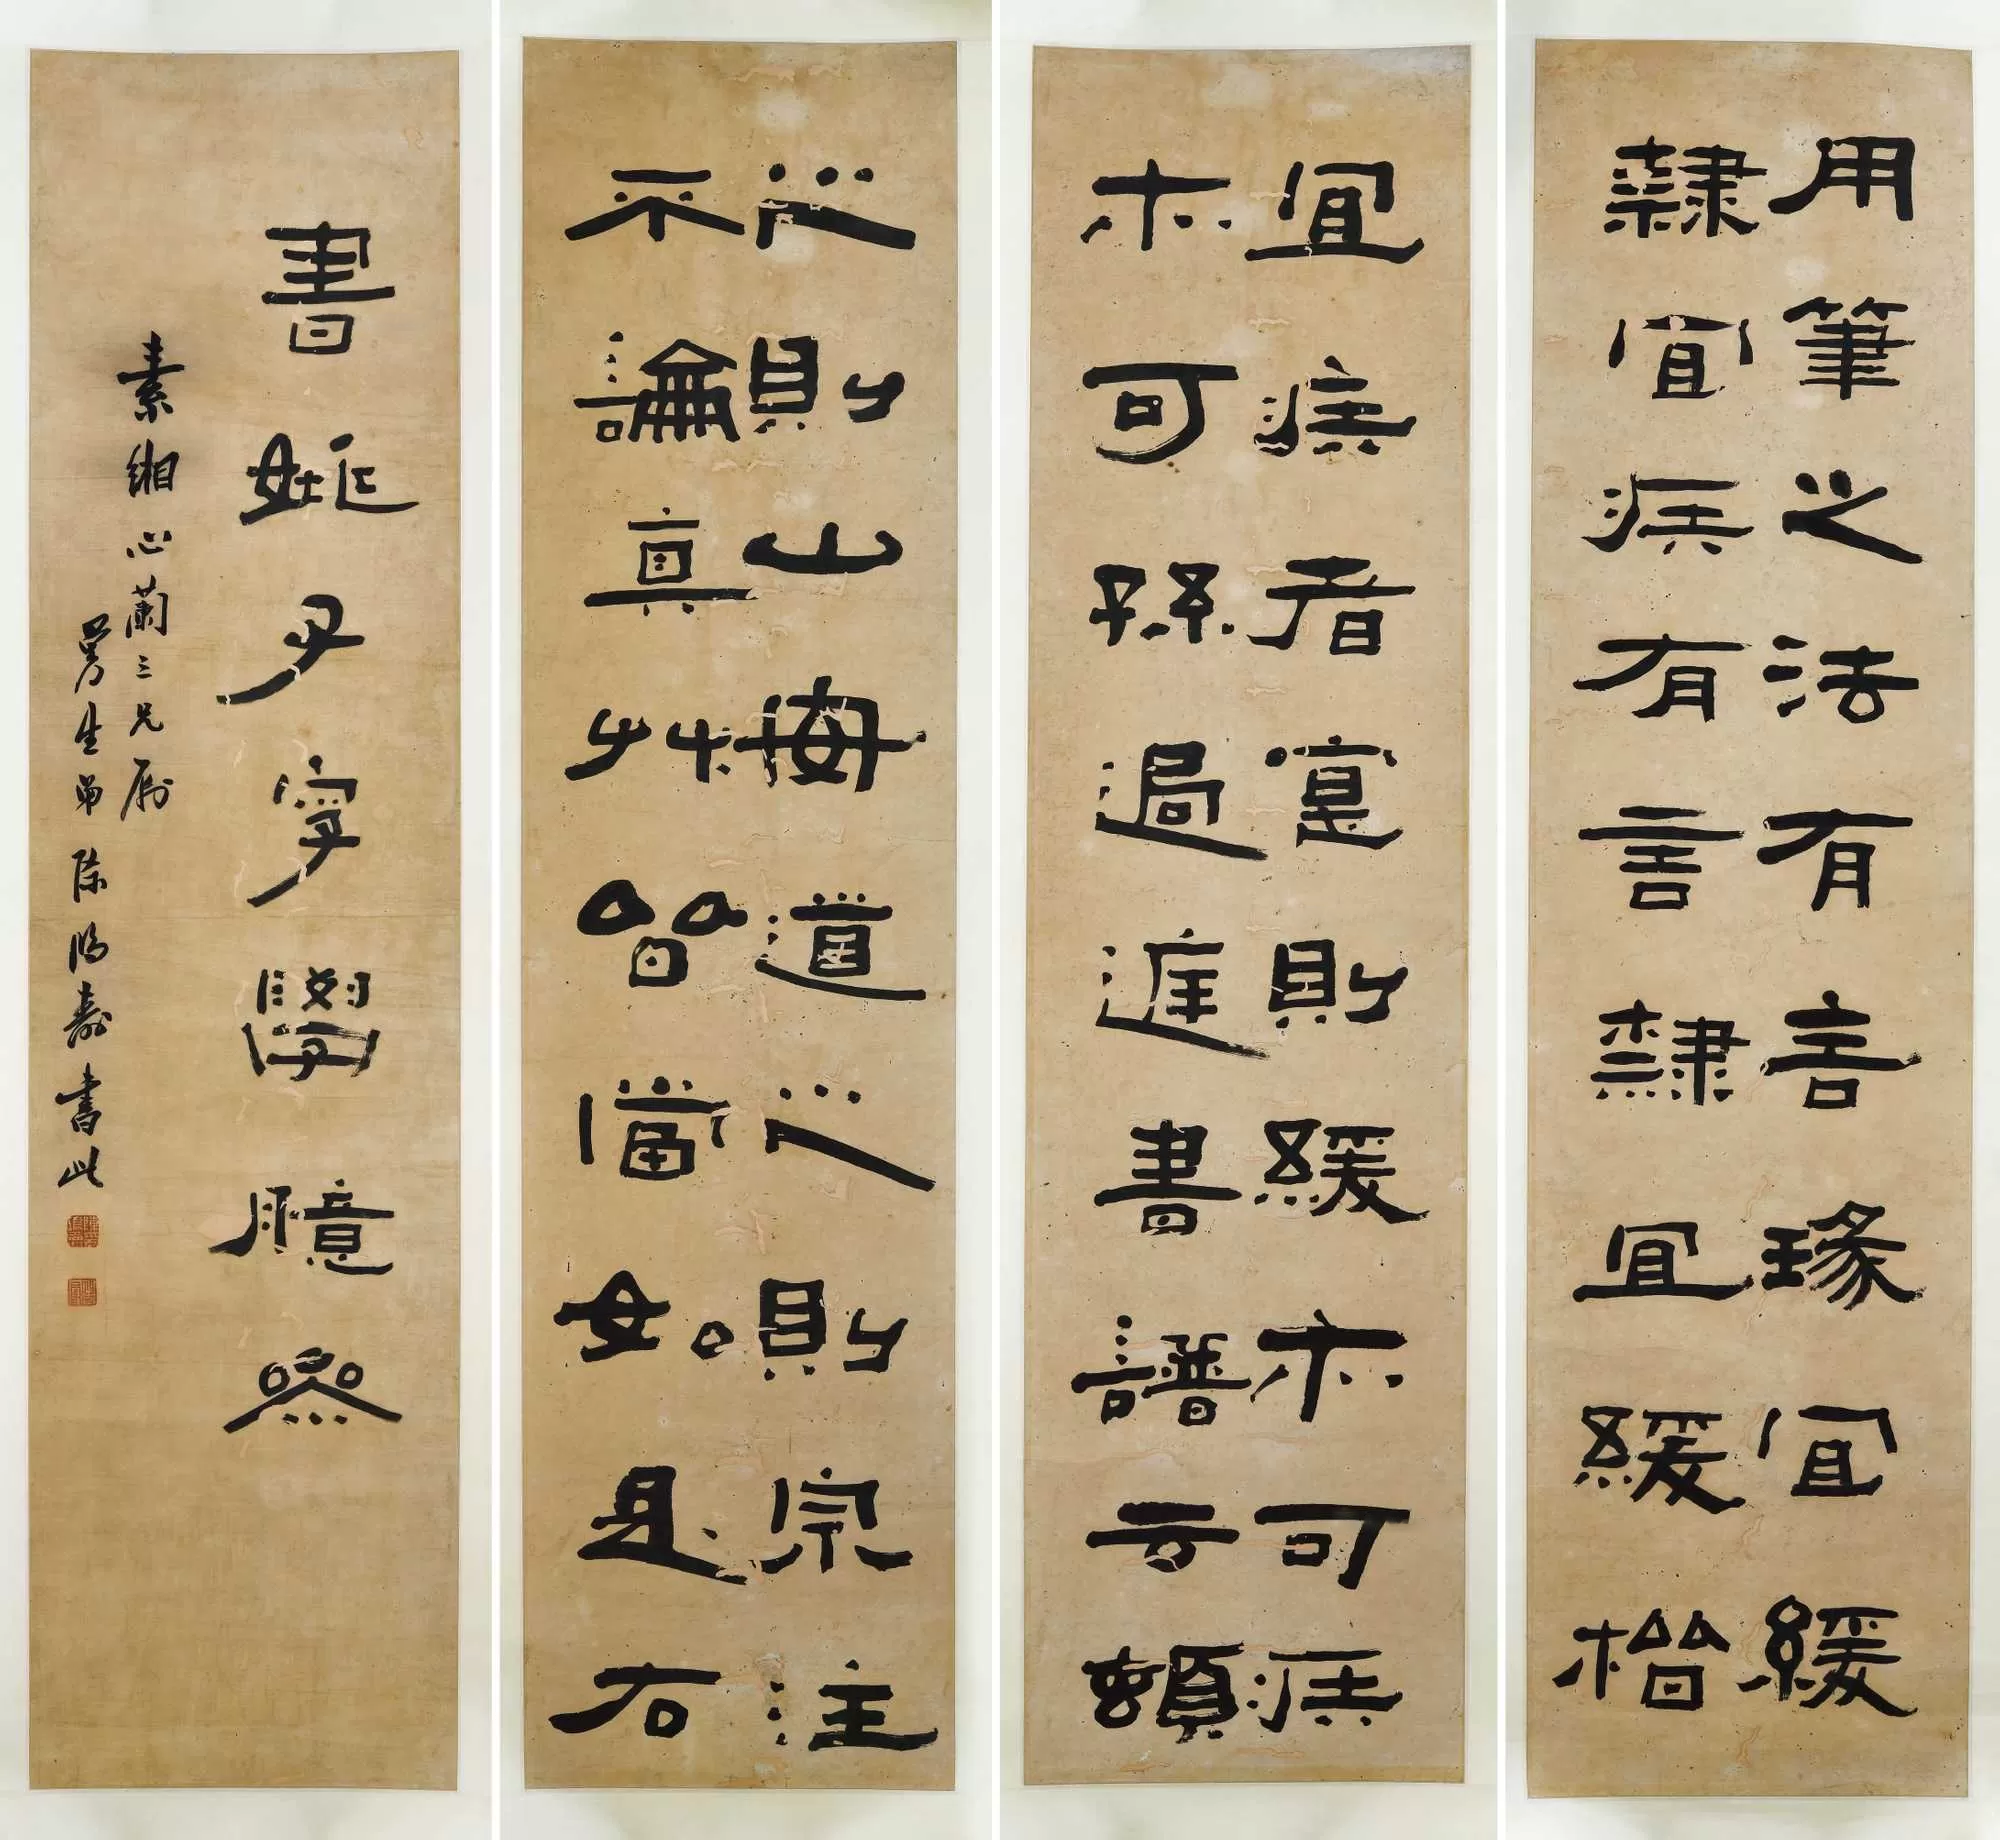 用筆之法有言瑑宜緩
隸宜疾有言隸宜緩楷
宜疾者寔則緩亦可疾
亦可孫過庭書譜云頓
之則山安道之則宗注
不論真艸皆當如是右
書尹寧學臆
素緗心蘭三兄屬
曼生弟陳鴻壽書此